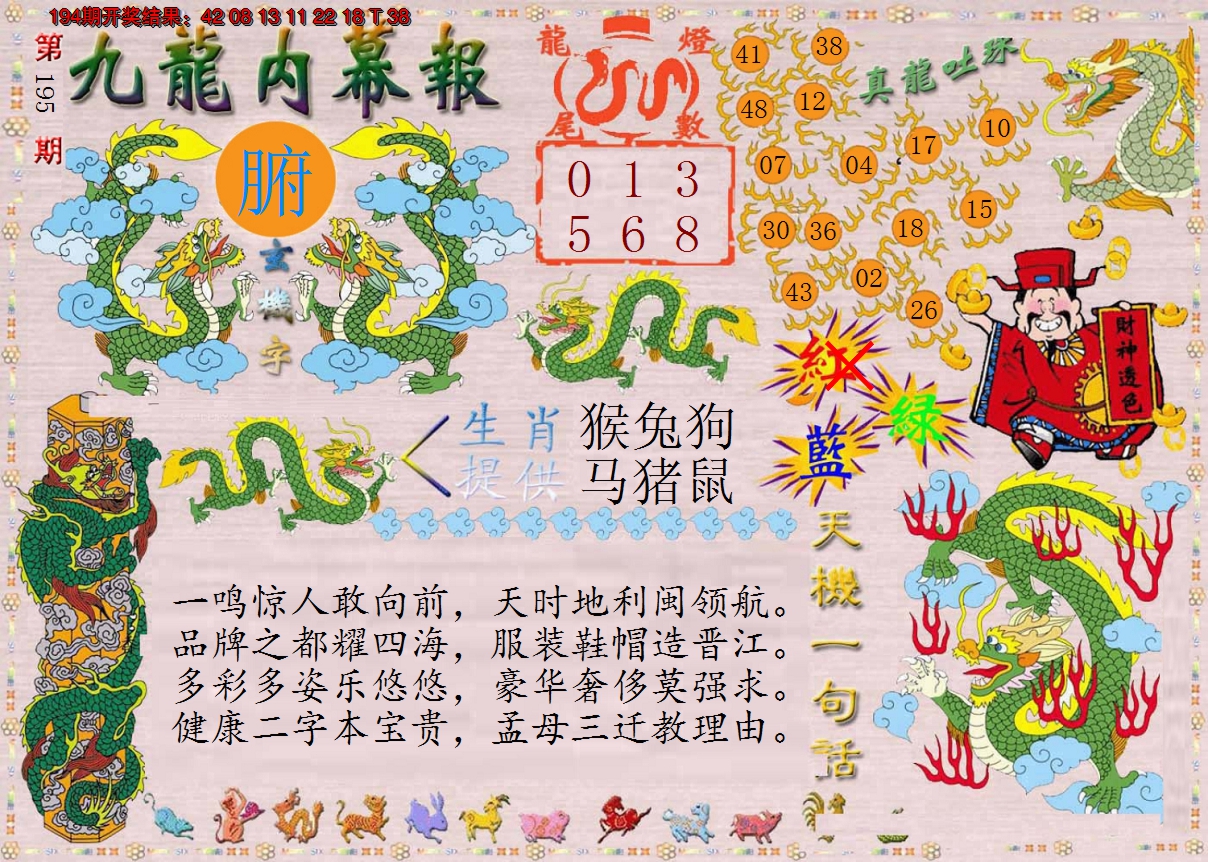 194期开奖结果：42 08 13 11 22 18 T 38
第195期
九龍内幕報
腑
玄機字
龍燈
尾數
0 1 3
5 6 8
真龍吐珠
41 38
48 12
17 10
07 04
15
30 36 18
43 02
26
財神透色
紅
綠
藍
生肖提供
猴兔狗
马猪鼠
天機一句話
一鸣惊人敢向前，天时地利闽领航。
品牌之都耀四海，服装鞋帽造晋江。
多彩多姿乐悠悠，豪华奢侈莫强求。
健康二字本宝贵，孟母三迁教理由。